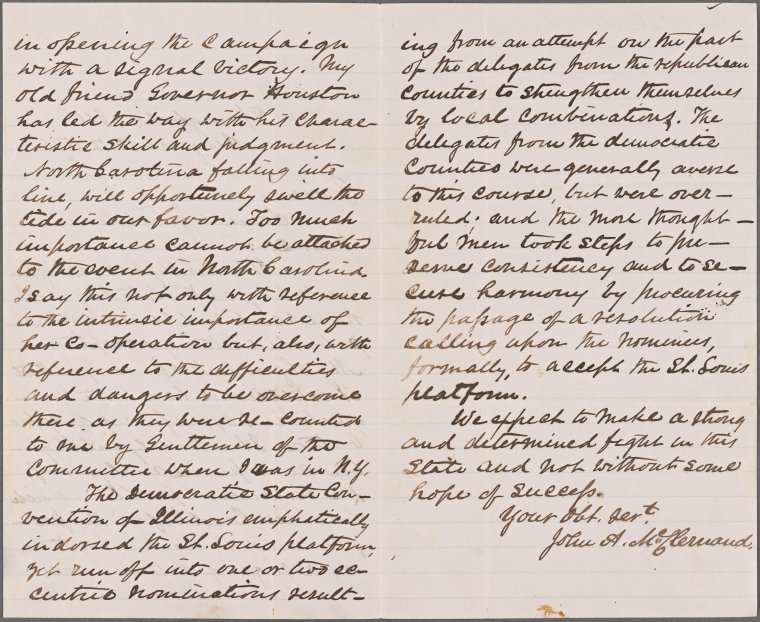 in opening the campaign
with a signal victory. My
old friend Governor Houston
has led the way with his charac-
teristic skill and judgment.
North Carolina falling into
line, will opportunely swell the
tide in our favor. Too much
importance cannot be attached
to the event in North Carolina.
I say this not only with reference
to the intrinsic importance of
her co-operation but, also, with
reference to the difficulties
and dangers to be overcome
there, as they were re-counted
to me by Gentlemen of the
Committee when I was in N.Y.
The Democratic State Con-
vention of Illinois emphatically
indorsed the St. Louis platform,
yet run off into one or two ec-
centric nominations result-
ing from an attempt on the part
of the delegates from the republican
counties to strengthen themselves
by local combinations. The
delegates from the democratic
counties were generally averse
to this course, but were over-
ruled; and the more thought-
ful men took steps to pre-
serve consistency and to se-
cure harmony by procuring
the passage of a resolution
calling upon the nominees,
formally, to accept the St. Louis
platform.
We expect to make a strong
and determined fight in this
State and not without some
hope of success.
Your Obt. Servt
John A. McClernand.